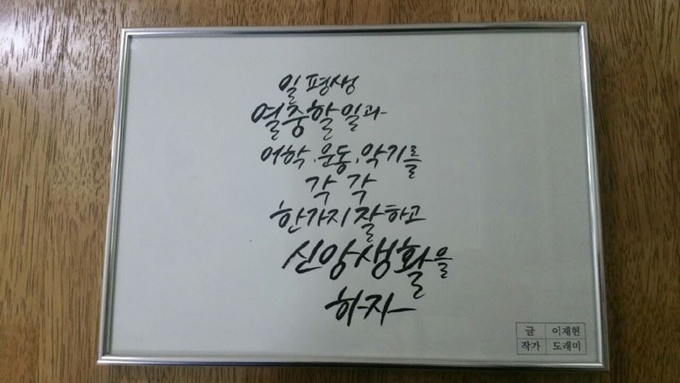 일평생
열중할 일과
어학·운동·악기를
각각
한가지 잘하고
신앙생활을
하자
글 이재현
작가 도래미